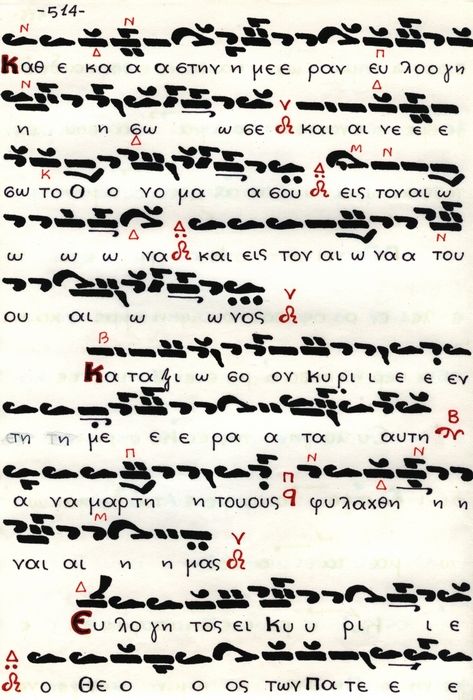 -514-
Καθ ε κα α α στην η με ε ραν ευ λο ο γη
η η σω ω ω σε και αι νε ε ε
σω το Ο ο νο μα α α σου εις τον αι ω
ω ω ω να και εις τον αι ω να α του
ου αι ω ω νος .
Κα τα ξι ω σο ον Κυ ρι ι ε ε εν
ετη τη με ε ε ρα α τα αυτη
α να μαρ τη τους ους φυ λα χθη η η
ναι αι η η μας
Ευ λο γη τος ει Κυ υ ρι ι ε
ο Θε ο ο ος των Πα τε ε ε